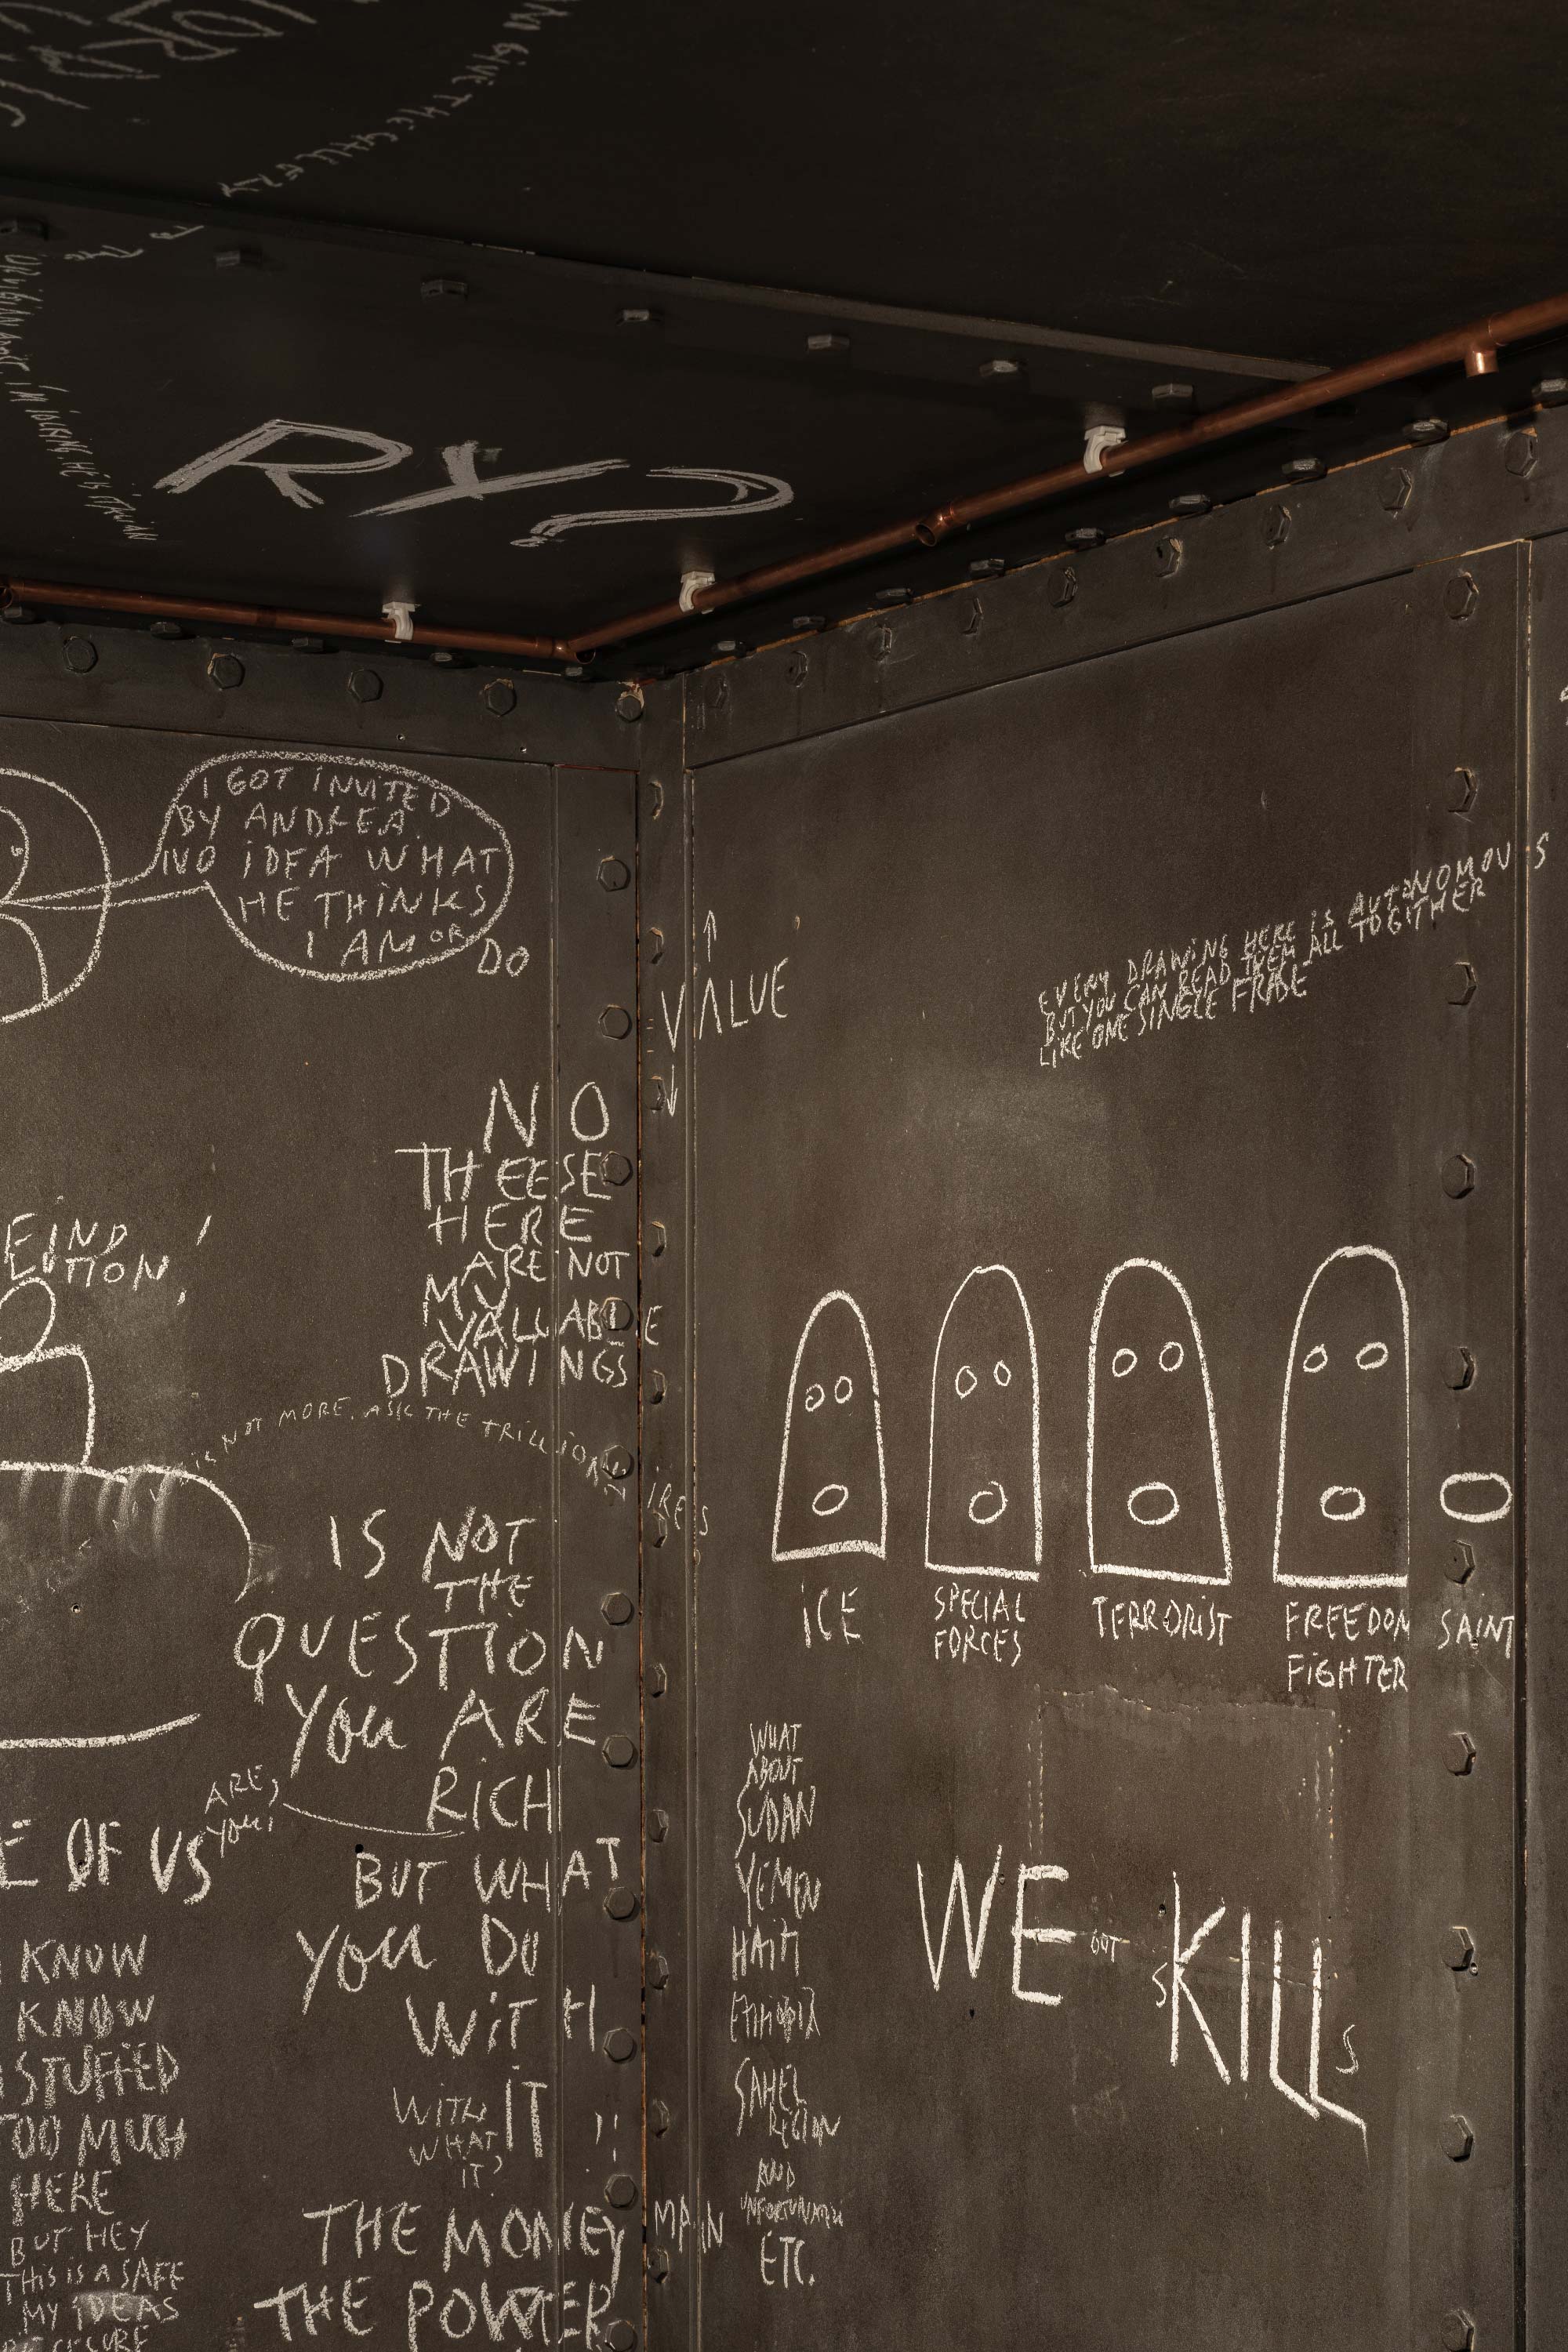 GIVE THE GALLERY
TO THE
I'M JOCKING HE IS ITALIAN
RY?
I GOT INVITED
BY ANDREA
NO IDEA WHAT
HE THINKS
I AM OR DO
= VALUE
EVERY DRAWING HERE IS AUTONOMOUS
BUT YOU CAN READ THEM ALL TOGITHER
LIKE ONE SINGLE FRASE
NO
THEESE
HERE
ARE NOT
MY
VALUABLE
DRAWINGS
NOT MORE. ASK THE TRILLIONAIRES
IS NOT
THE
QUESTION
YOU ARE
RICH
ARE,
YOU?
BUT WHAT
YOU DO
WITH
IT
WITH
WHAT
IT?
THE MONEY MAIN
THE POWER
E OF US
KNOW
KNOW
STUFFED
TOO MUCH
HERE
BUT HEY
THIS IS A SAFE
MY IDEAS
ICE
SPECIAL
FORCES
TERRORIST
FREEDOM
FIGHTER
SAINT
WHAT
ABOUT
SUDAN
YEMEN
HAITI
ETHIOPIA
SAHEL
REGION
AND
UNFORTUNATELY
ETC.
WE GOT SKILLS